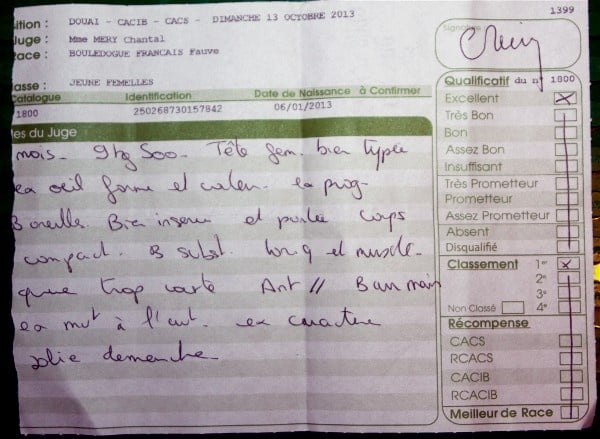 1399
sition : DOUAI - CACIB - CACS - DIMANCHE 13 OCTOBRE 2013
Juge : Mme MERY Chantal
Race : BOULEDOGUE FRANCAIS Fauve
asse : JEUNE FEMELLES
Catalogue Identification Date de Naissance à Confirmer
1800 250268730157842 06/01/2013
es du Juge
mois - 9 kg 500 - Tête fem. bien typée
ex oeil forme et valeur. ex prog-
B oreilles. Bien inserees et portées corps
compact. B subst. et muscle.
queue trop Ant // B
ex mvt à l'ant. ex caractère
jolie demarche
Signature
Qualificatif du n° 1800
Excellent X
Très Bon
Bon
Assez Bon
Insuffisant
Très Prometteur
Prometteur
Assez Prometteur
Absent
Disqualifié
Classement 1er X
2e
3e
Non Classé 4e
Récompense
CACS
RCACS
CACIB
RCACIB
Meilleur de Race